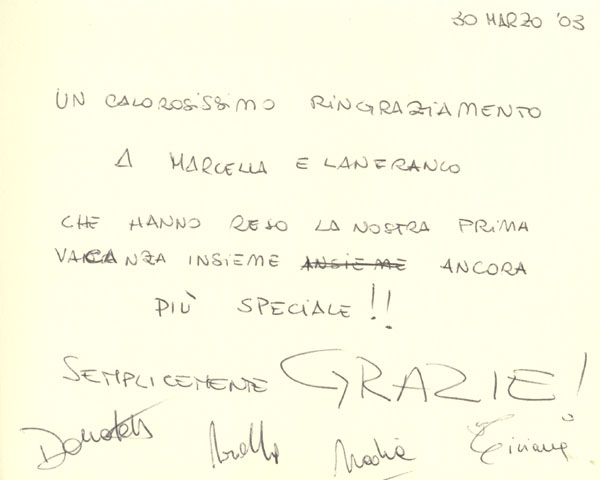 30 MARZO '03
UN CALOROSISSIMO RINGRAZIAMENTO
A MARCELLA E LANFRANCO
CHE HANNO RESO LA NOSTRA PRIMA
VACANZA INSIEME ANSIEME ANCORA
PIÙ SPECIALE !!
SEMPLICEMENTE GRAZIE!
Donatella Nadia Tiziana